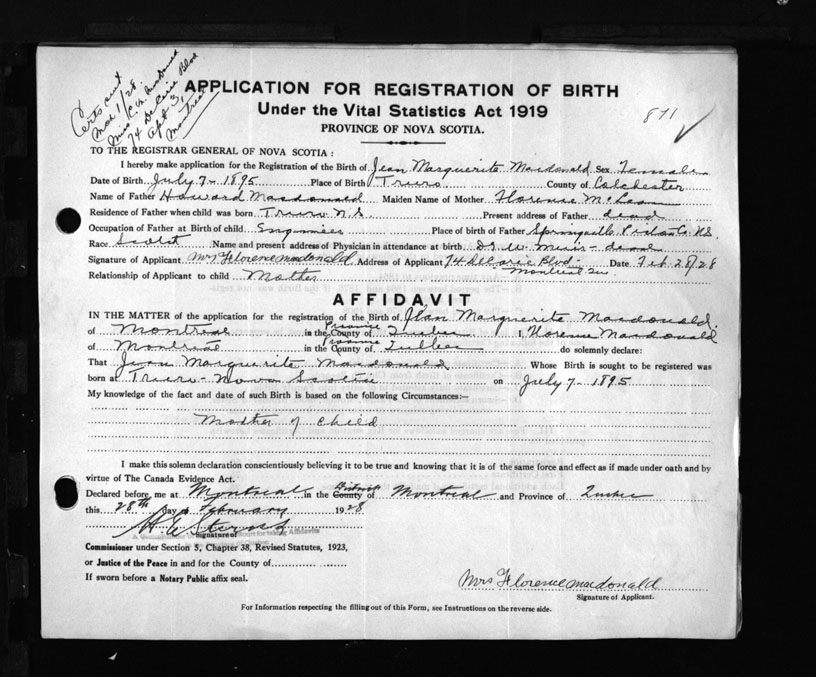 Certs sent
Mar 1/28.
Miss C. M. Macdonald
74 DeCarie Blvd
Apt 3,
Montreal
APPLICATION FOR REGISTRATION OF BIRTH
Under the Vital Statistics Act 1919
PROVINCE OF NOVA SCOTIA.
871
TO THE REGISTRAR GENERAL OF NOVA SCOTIA :
I hereby make application for the Registration of the Birth of Jean Marguerite Macdonald Sex Female
Date of Birth July 7 - 1895 Place of Birth Truro County of Colchester
Name of Father Howard Macdonald Maiden Name of Mother Florence McLean
Residence of Father when child was born Truro N.S. Present address of Father dead
Occupation of Father at Birth of child Place of birth of Father Springville Pictou Co. N.S.
Race Scotch Name and present address of Physician in attendance at birth Dr. W. Muir - dead
Signature of Applicant Mrs Florence Macdonald Address of Applicant 74 DeCarie Blvd - Date Feb. 28/28
Montreal Qu.
Relationship of Applicant to child Mother
AFFIDAVIT
IN THE MATTER of the application for the registration of the Birth of Jean Marguerite Macdonald
of Montreal in the Province County of Quebec I, Florence Macdonald
of Montreal in the Province County of Quebec do solemnly declare:
That Jean Marguerite Macdonald Whose Birth is sought to be registered was
born at Truro - Nova Scotia on July 7 - 1895
My knowledge of the fact and date of such Birth is based on the following Circumstances:-
Mother of child
I make this solemn declaration conscientiously believing it to be true and knowing that it is of the same force and effect as if made under oath and by
virtue of The Canada Evidence Act.
Declared before me at Montreal in the District County of Montreal and Province of Quebec
this 28th day of February 1928
Signature of
Commissioner under Section 5, Chapter 38, Revised Statutes, 1923,
or Justice of the Peace in and for the County of
If sworn before a Notary Public affix seal.
Mrs Florence Macdonald
Signature of Applicant.
For Information respecting the filling out of this Form, see Instructions on the reverse side.